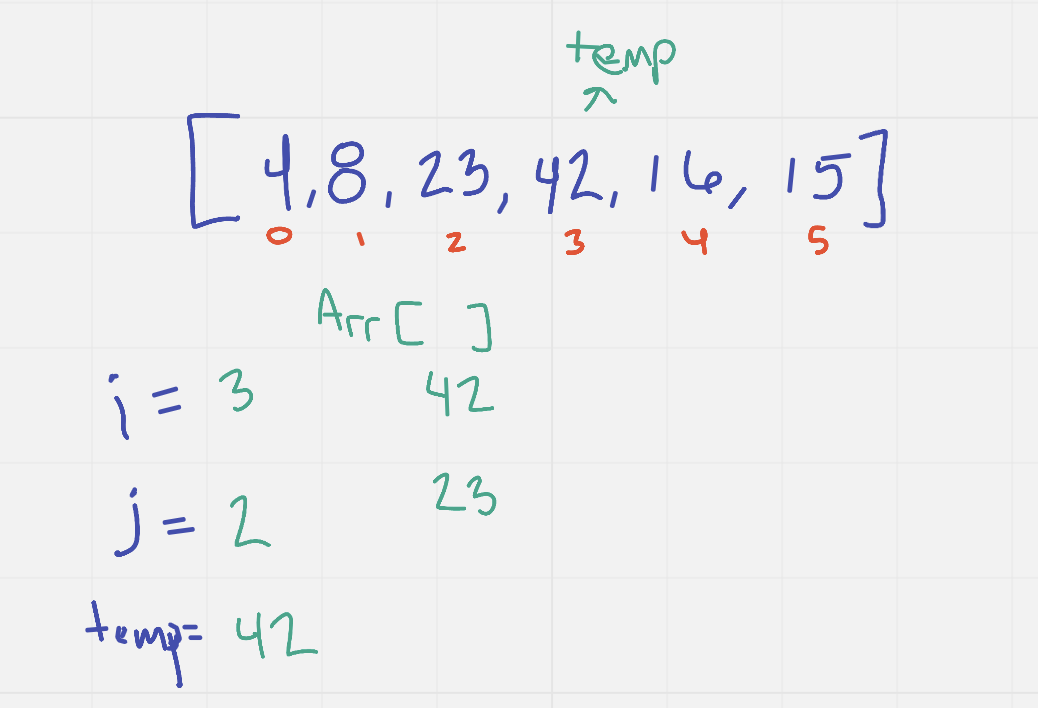 temp
[4, 8, 23, 42, 16, 15]
0 1 2 3 4 5
Arr[ ]
i = 3 42
j = 2 23
temp= 42